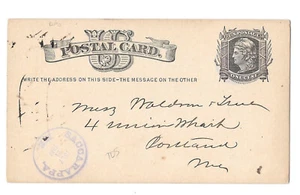 US
POSTAL CARD.
WRITE THE ADDRESS ON THIS SIDE - THE MESSAGE ON THE OTHER
Messrs Waldron & True
4 Union Wharf
Portland
Me